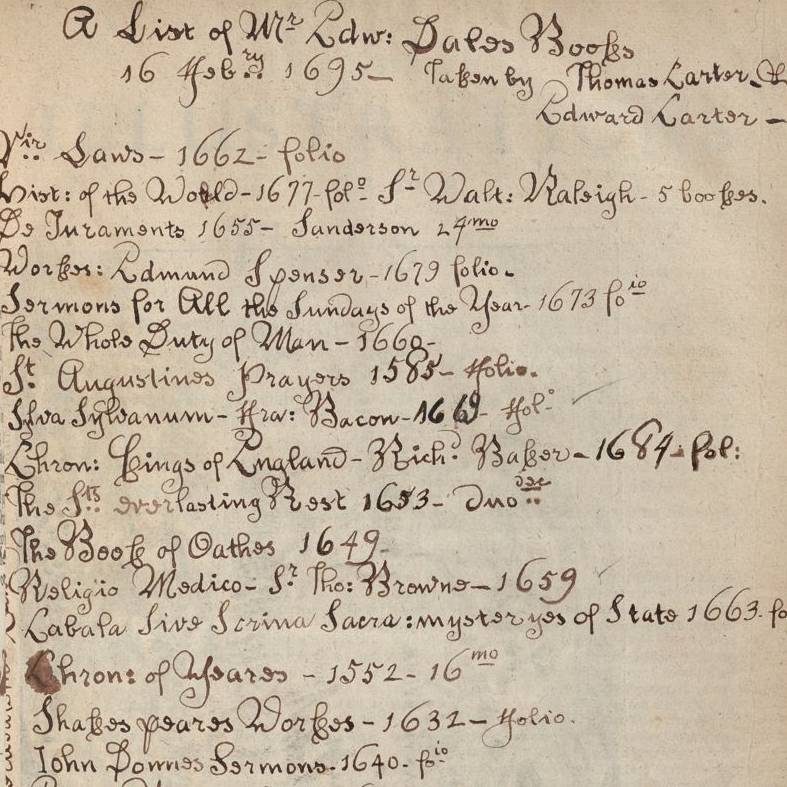 A List of Mr Edw: Dales Books
16 Feb:ry 1695 – Taken by Thomas Carter &
Edward Carter –
Vir:: Laws – 1662 – folio
Hist: of the World – 1677 – folo – Sr Walt: Raleigh – 5 bookes.
De Juraments 1655 – Sanderson 24mo
Workes: Edmund Spenser – 1679 folio.
Sermons for All the Sundays of the Year – 1673 foio
The Whole Duty of Man – 1660 –
St. Augustines Prayers 1585 – ffolio.
Sylva Sylvanum – ffra: Bacon – 1669 – ffol:o
Chron: Kings of England – Richd: Baker – 1684 – fol:
The Sts: everlasting Rest 1653 – Duodec::
The Book of Oathes 1649 –
Religio Medico – Sr Tho: Browne – 1659
Cabala Sive Scrina Sacra: mysteryes of State 1663 – fo
Chron: of Yeares – 1552 – 16mo
Shakespeares Workes – 1632 – ffolio.
John Donnes Sermons – 1640 – foio